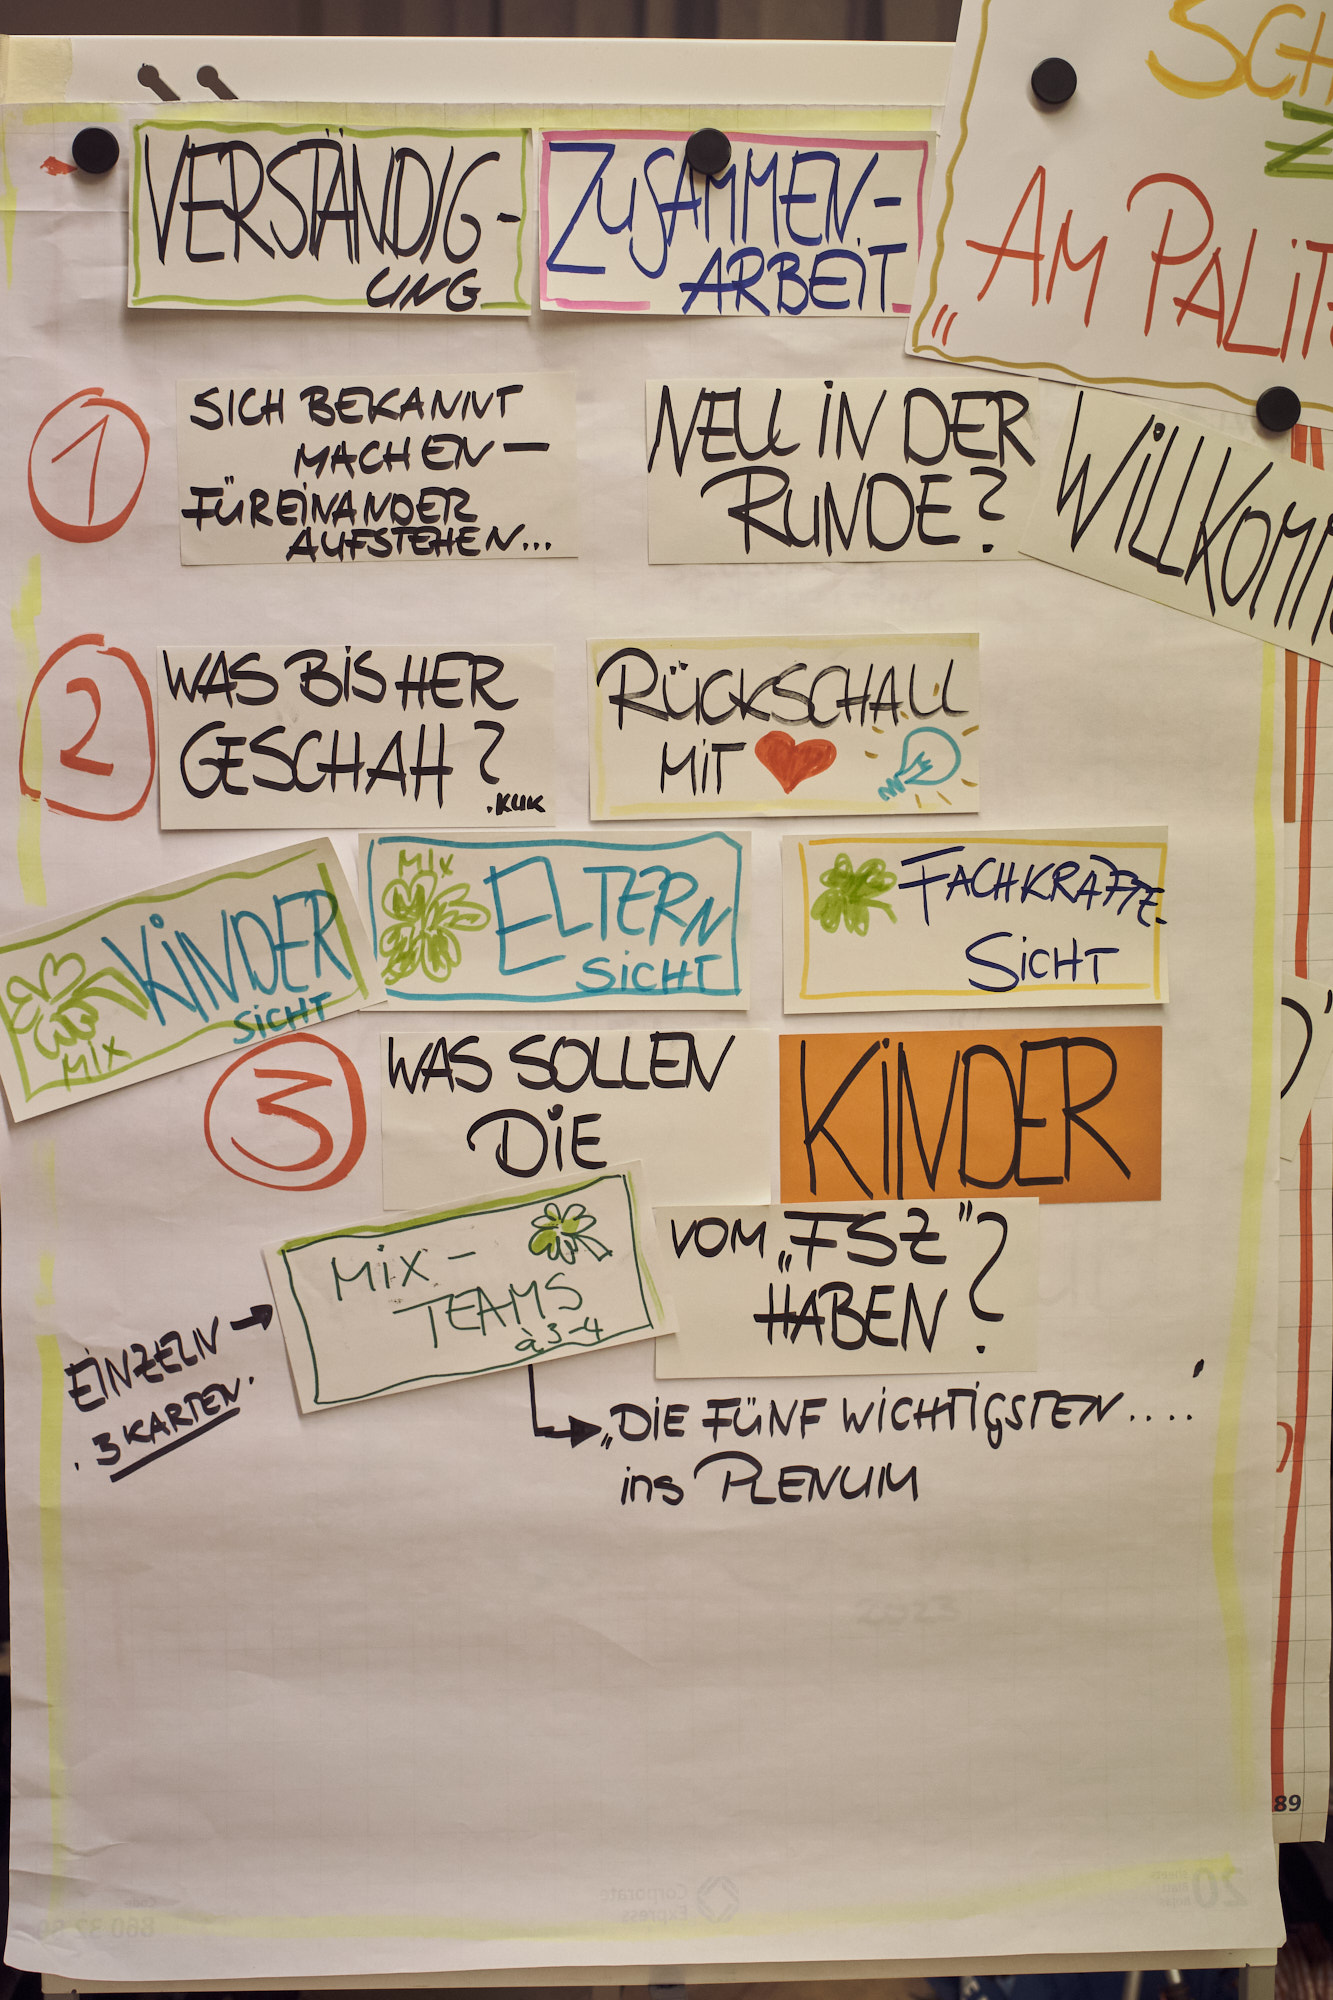 VERSTÄNDIG-
UNG
ZUSAMMEN-
ARBEIT
SCH
Z
"AM PALIT
1
SICH BEKANNT
MACHEN –
FÜREINANDER
AUFSTEHEN...
NEU IN DER
RUNDE?
WILLKOMM
2
WAS BISHER
GESCHAH?
.KUK
RÜCKSCHALL
MIT
KINDER
SICHT
MIX
MIX
ELTERN
SICHT
FACHKRÄFTE-
SICHT
3
WAS SOLLEN
DIE
KINDER
VOM „FSZ"
HABEN?
MIX-
TEAMS
à 3-4
EINZELN
. 3 KARTEN.
„DIE FÜNF WICHTIGSTEN....'
ins PLENUM
2023
89
Corporate
Express
20